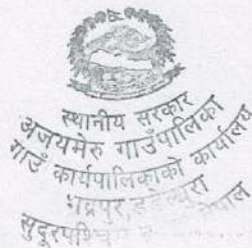 स्थानीय सरकार
अजयमेरु गाउँपालिका
गाउँ कार्यपालिकाको कार्यालय
डडेल्धुरा
सुदूरपश्चिम नेपाल